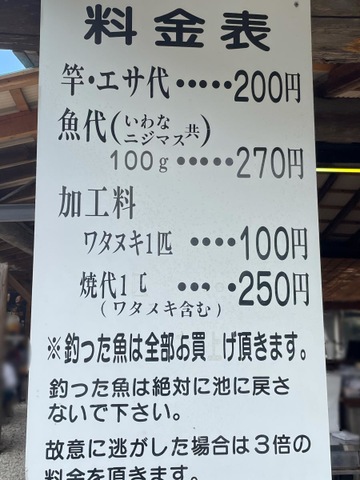 料金表
竿・エサ代•••••200円
魚代(いわな ニジマス共)
100g•••••270円
加工料
ワタヌキ1匹••••100円
焼代1 ••••250円
(ワタメキ含む)
※釣った魚は全部お買 げ頂きます。
釣った魚は絶対に池に戻さ
ないで下さい。
故意に逃がした場合は3倍の
料金を頂きます。